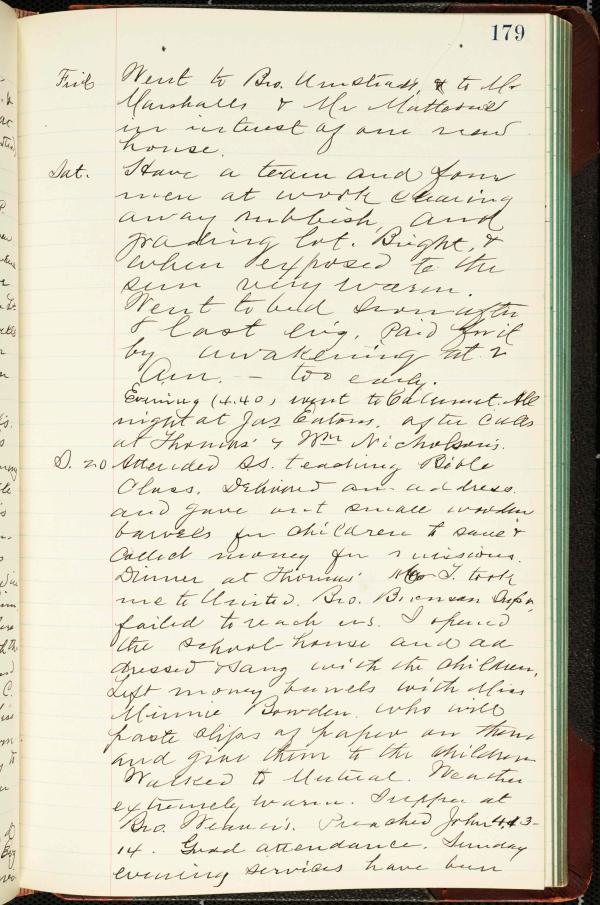 179
Frid Went to Bro. Umstead's, & to Mr
Marshalls & Mr Mattesons
in interest of our new
house.
Sat. Have a team and four
men at work clearing
away rubbish, and
grading lot. Bright, &
when exposed to the
sun very warm.
Went to bed soon after
8 last ev'g. Paid for it
by awakening at 2
Am. — too early.
Evening (4.40) went to Calumet. All
night at Jas Eatons, after calls
at Thomas' & Wm Nicholson's.
S. 20 Attended SS. teaching Bible
Class. Delivered an address
and gave out small wooden
barrels for children to save &
collect money for missions.
Dinner at Thomas'. T. took
me to United. Bro. Supt,
failed to reach us. I opened
the school-house and ad
dressed & sang with the children.
Left money barrels with Miss
Minnie Bowden who will
paste slips of paper on them
and give them to the children
Walked to Mutual. Weather
extremely warm. Supper at
Bro. Weaver's. Preached John 4.13-
14. Good attendance. Sunday
evening services have been